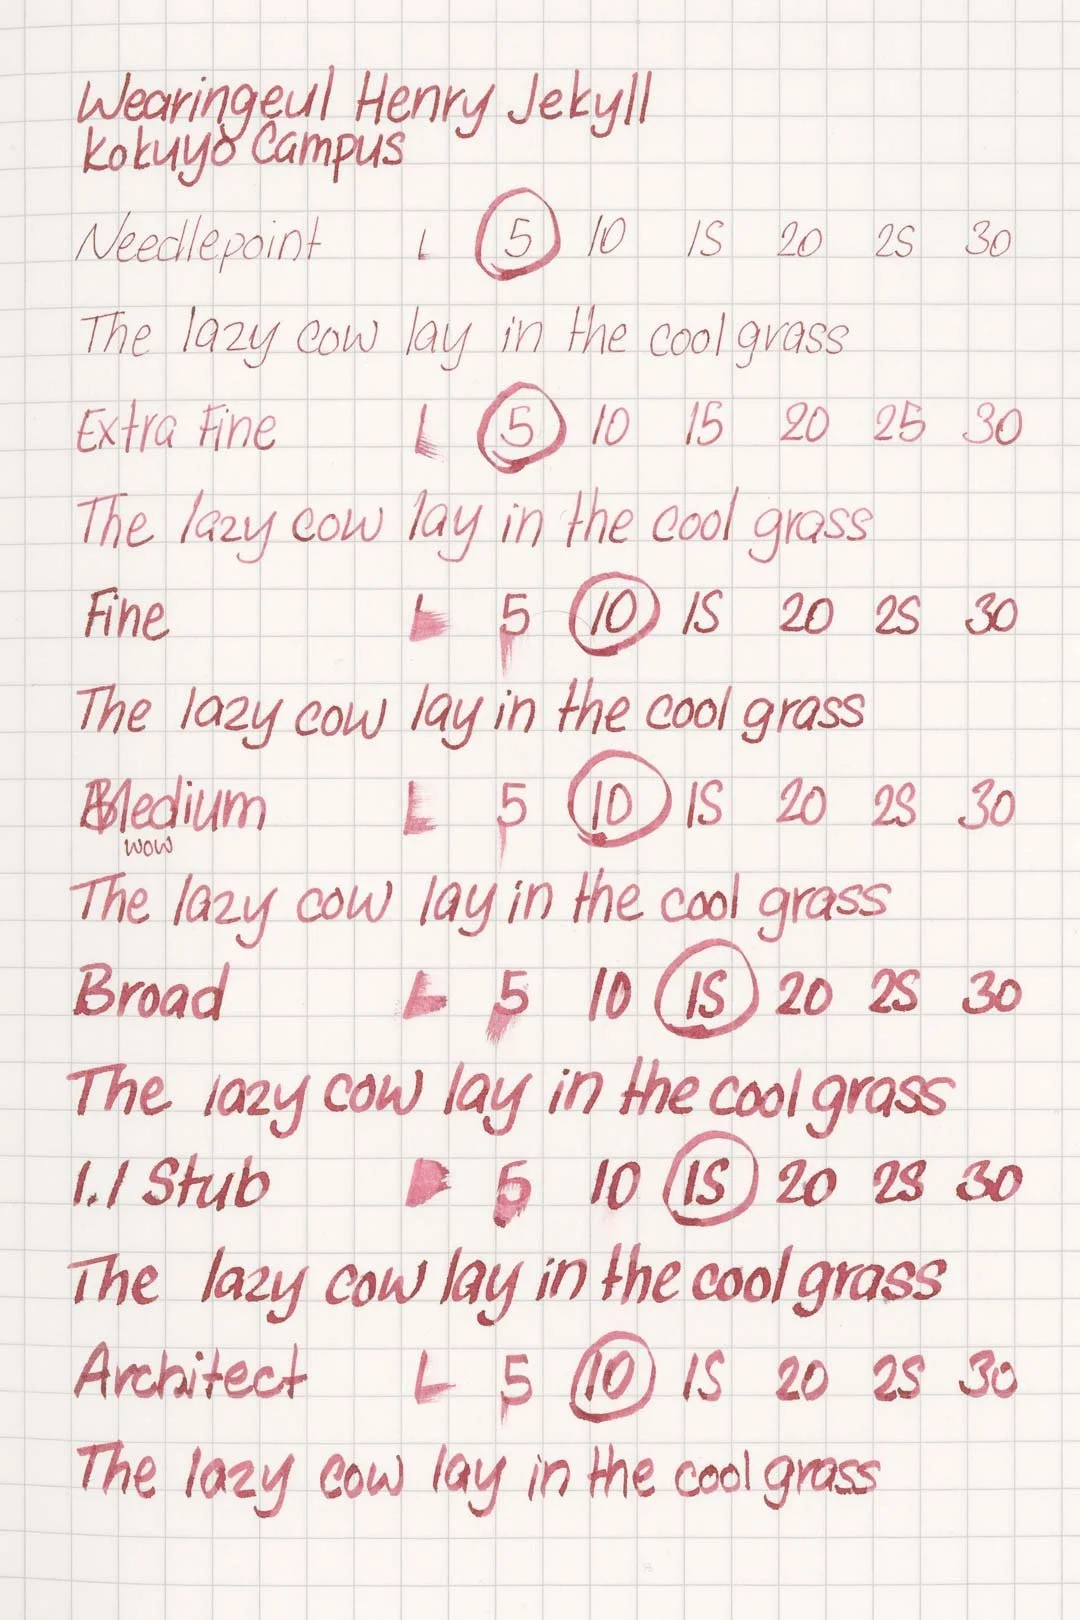 Wearingeul Henry Jekyll
Kokuyo Campus
Needlepoint L 5 10 15 20 25 30
The lazy cow lay in the cool grass
Extra Fine L 5 10 15 20 25 30
The lazy cow lay in the cool grass
Fine L 5 10 15 20 25 30
The lazy cow lay in the cool grass
Medium L 5 10 15 20 25 30
wow
The lazy cow lay in the cool grass
Broad L 5 10 15 20 25 30
The lazy cow lay in the cool grass
1.1 Stub L 5 10 15 20 25 30
The lazy cow lay in the cool grass
Architect L 5 10 15 20 25 30
The lazy cow lay in the cool grass